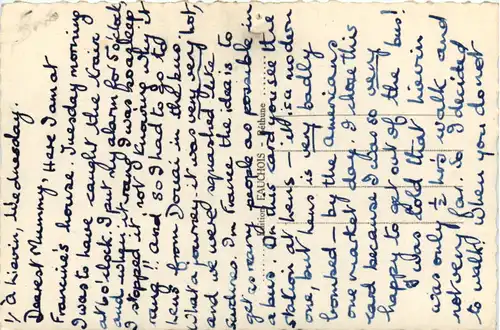 à Liévin, Wednesday.
Dearest Mummy, Here I am at
Francine's house. Tuesday morning
I was to have caught the train
at 6 o'clock. I put my alarm for 5 o'clock
and when it rang I was so asleep
I stopped it not knowing why it
rang!! and so I had to go to
Lens from Douai in the bus.
What a journey it was very hot,
and we were squashed like
sardines. In France the idea is to
get as many people as possible in
a bus. On this card you see the
station at Lens - it is a modern
one, but Lens is very badly
bombed - by the americans
one market day. I chose this
card because I was so very
happy to get out of the bus!
I was told that Liévin
was only ½ hrs' walk and
not very far. So I decided
to walk! When you do not
Edition FAUCHOIS - Béthune